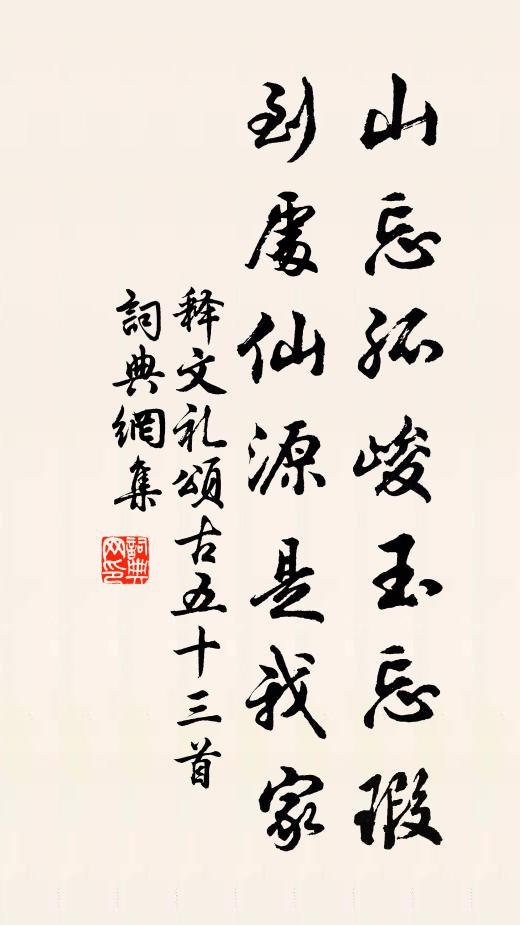 山忘孤峻玉忘瑕
到處仙源是我家
释文礼頌古五十三首
詞典網集
詞典網印